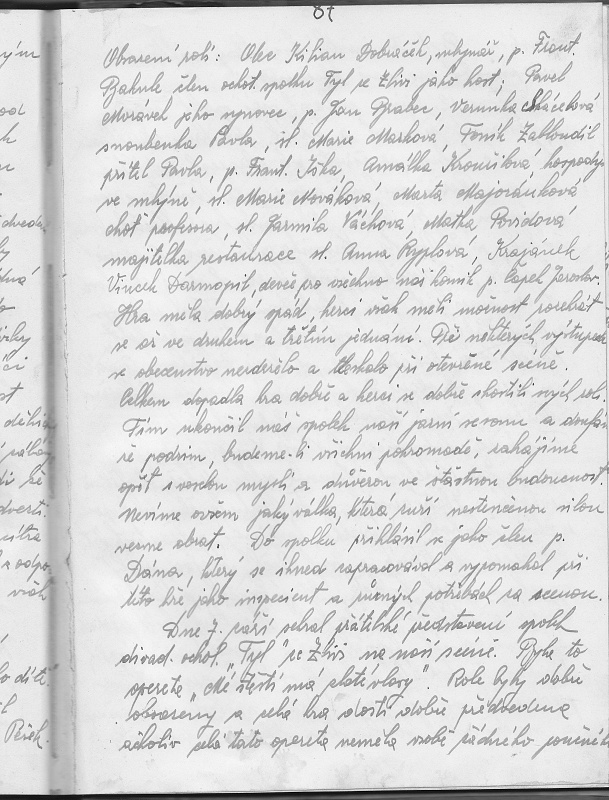 87
Obsazení rolí: Otec Kilian Dobráček, mlynář, p. Frant.
Bakule člen ochot. spolku Tyl ze Zlivi jako host; Pavel
Morávek jeho synovec, p. Jan Brabec, Verunka
snoubenka Pavla, sl. Marie Marková, Toník Zabloudil
přítel Pavla, p. Frant. Jiška, Amálka Kroupilova, hospodyně
ve mlýně, sl. Marie Nováková, Marta Majoránková
choť profesora, sl. Jarmila Váchová, Matka Povidová
majitelka restaurace sl. Anna Ryplová, Krajánek
Vincek Darmopil, děveč pro všechno náš komik p. Čapek Jaroslav.
Hra měla dobrý spád, herci však měli možnost rozehrát
se až ve druhém a třetím jednání. Při některých výstupech
se obecenstvo nezdrželo a tleskalo při otevřené scéně.
Celkem dopadla hra dobře a herci se dobře zhostili svých rolí.
Tím ukončil náš spolek naši jarní sezonu a doufá
že podzim, budeme-li všichni pohromadě, zahájíme
opět s veselou myslí a důvěrou ve šťastnou budoucnost.
Nevíme ovšem jaký válka, která zuří neztenčenou silou
vezme obrat. Do spolku přihlásil se jako člen p.
Dána, který se ihned zapracovával a vypomáhal při
této hře jako inspicient a různých potřebách za scenou.
Dne 7. září sehrál přátelské představení spolek
divad. ochot. „Tyl" ze Zliví na naší scéně. Byla to
opereta „Mé štěstí má zlaté vlasy". Role byly dobře
obsazeny a celá hra dosti dobře předvedena
ačkoliv celá tato opereta neměla v sobě žádného